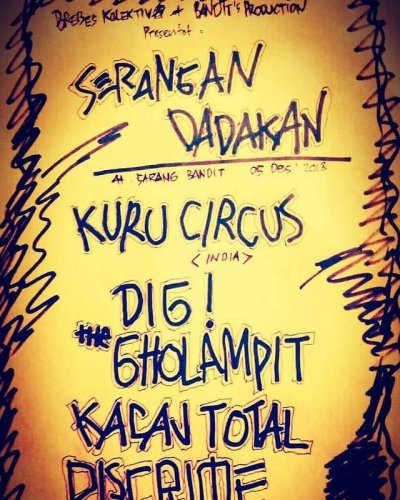 BREBES KOLEKTIVA + BANDIT'S PRODUCTION
Presentot:
SERANGAN
DADAKAN
At SARANG BANDIT 05 DES' 2018
KURU CIRCUS
<INDIA>
DIG!
the GHOLAMPIT
KACAU TOTAL
DISCRIME